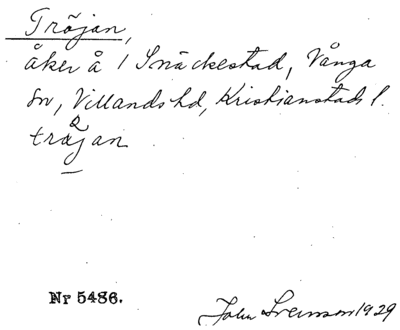 Tröjan,
åker å 1 Snäckestad, Vånga
sn, Villands hd, Kristianstads l.
tröjan
Nr 5486.
John Svensson 1929